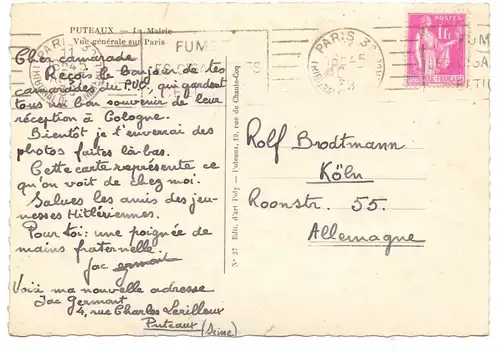 PUTEAUX. — La Mairie
Vue générale sur Paris
Cher camarade
Reçois le bonjour de tes
camarades du PUC, qui gardent
tous un bon souvenir de leur
réception à Cologne.
Bientôt je t'enverrai des
photos faites là-bas.
Cette carte représente ce
qu'on voit de chez moi.
Salues les amis des jeu-
nesses Hitlériennes.
Pour toi: une poignée de
mains fraternelle.
Jac Germont
Voici ma nouvelle adresse
Jac Germont
4, rue Charles Lorilleux
Puteaux (Seine)
Nº 27 Edit. d'art Puteaux, 19, rue de Chante-Coq
PARIS
FUM
PARIS
POSTES
1F
Rolf Brodtmann
Köln
Roonstr. 55.
Allemagne